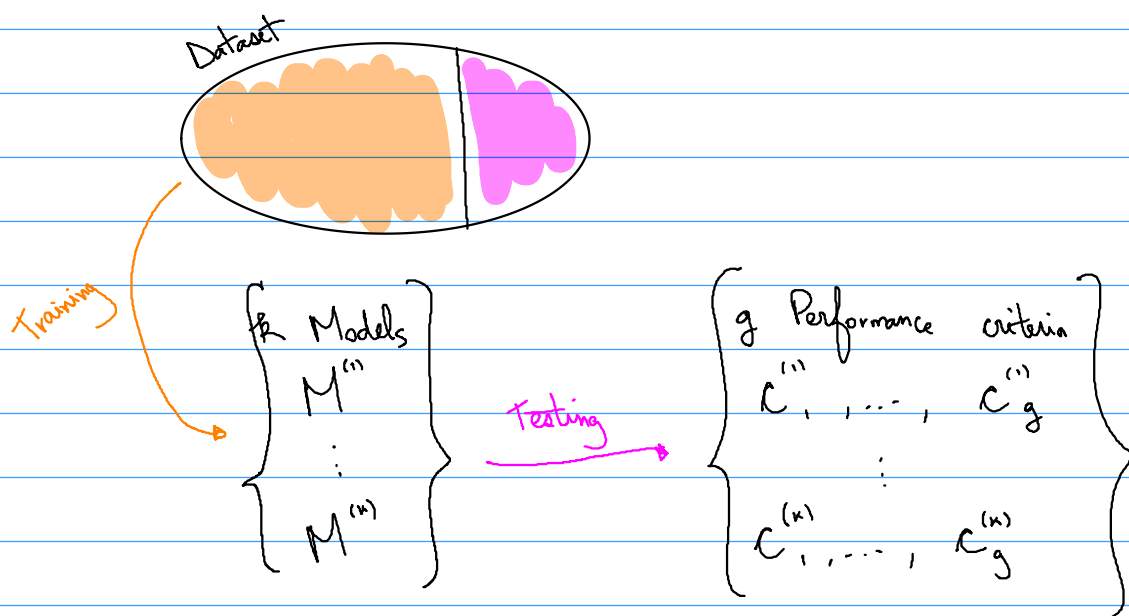 Dataset
Training
k Models
M⁽¹⁾
⋮
M⁽ᵏ⁾
Testing
g Performance criteria
C₁⁽¹⁾, ..., C_g⁽¹⁾
⋮
C₁⁽ᵏ⁾, ..., C_g⁽ᵏ⁾